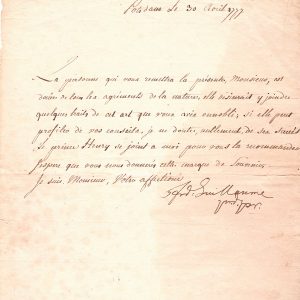 Potsdam Le 30 Août 1777
La personne qui vous remettra la présente, Monsieur, est
douée de tous les agréments de la nature, elle désireroit y joindre
quelques traits de cet art que vous avés ennobli, si elle peut
profiter de vos conseils, je ne doute nullement de ses succès
Le prince Henry se joint a moi pour vous la recommander
J'espere que vous nous donnerés cette marque de souvenir
Je suis Monsieur, Votre affectioné
Guillaume